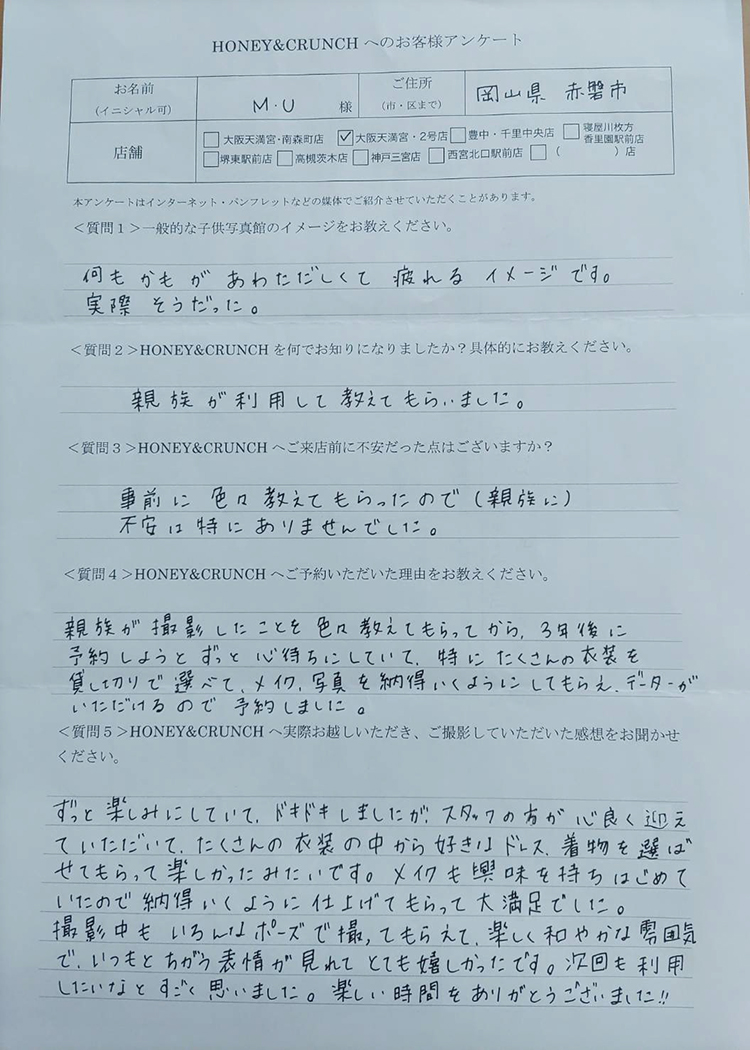 HONEY&CRUNCH へのお客様アンケート
お名前
(イニシャル可)
M・U 様
ご住所
(市・区まで)
岡山県 赤磐市
店舗
□大阪天満宮・南森町店 ☑大阪天満宮・2号店 □豊中・千里中央店 □寝屋川枚方香里園駅前店
□堺東駅前店 □高槻茨木店 □神戸三宮店 □西宮北口駅前店 □( )店
本アンケートはインターネット・パンフレットなどの媒体でご紹介させていただくことがあります。
<質問1>一般的な子供写真館のイメージをお教えください。
何もかもがあわただしくて 疲れる イメージです。
実際 そうだった。
<質問2>HONEY&CRUNCH を何でお知りになりましたか?具体的にお教えください。
親族が利用して教えてもらいました。
<質問3>HONEY&CRUNCH へご来店前に不安だった点はございますか?
事前に 色々教えてもらったので(親族に)
不安は特にありませんでした。
<質問4>HONEY&CRUNCH へご予約いただいた理由をお教えください。
親族が撮影したことを色々教えてもらってから、3年後に
予約しようとずっと心待ちにしていて、特にたくさんの衣装を
貸し切りで選べて、メイク、写真を納得いくようにしてもらえ、データーが
いただけるので予約しました。
<質問5>HONEY&CRUNCH へ実際お越しいただき、ご撮影していただいた感想をお聞かせ
ください。
ずっと楽しみにしていて、ドキドキしましたが、スタッフの方が心良く迎え
ていただいて、たくさんの衣装の中から好きなドレス、着物を選ば
せてもらって楽しかったみたいです。メイクも興味を持ちはじめて
いたので納得いくように仕上げてもらって大満足でした。
撮影中もいろんなポーズで撮ってもらえて、楽しく和やかな雰囲気
で、いつもとちがう表情が見れてとても嬉しかったです。次回も利用
したいなとすごく思いました。楽しい時間をありがとうございました!!